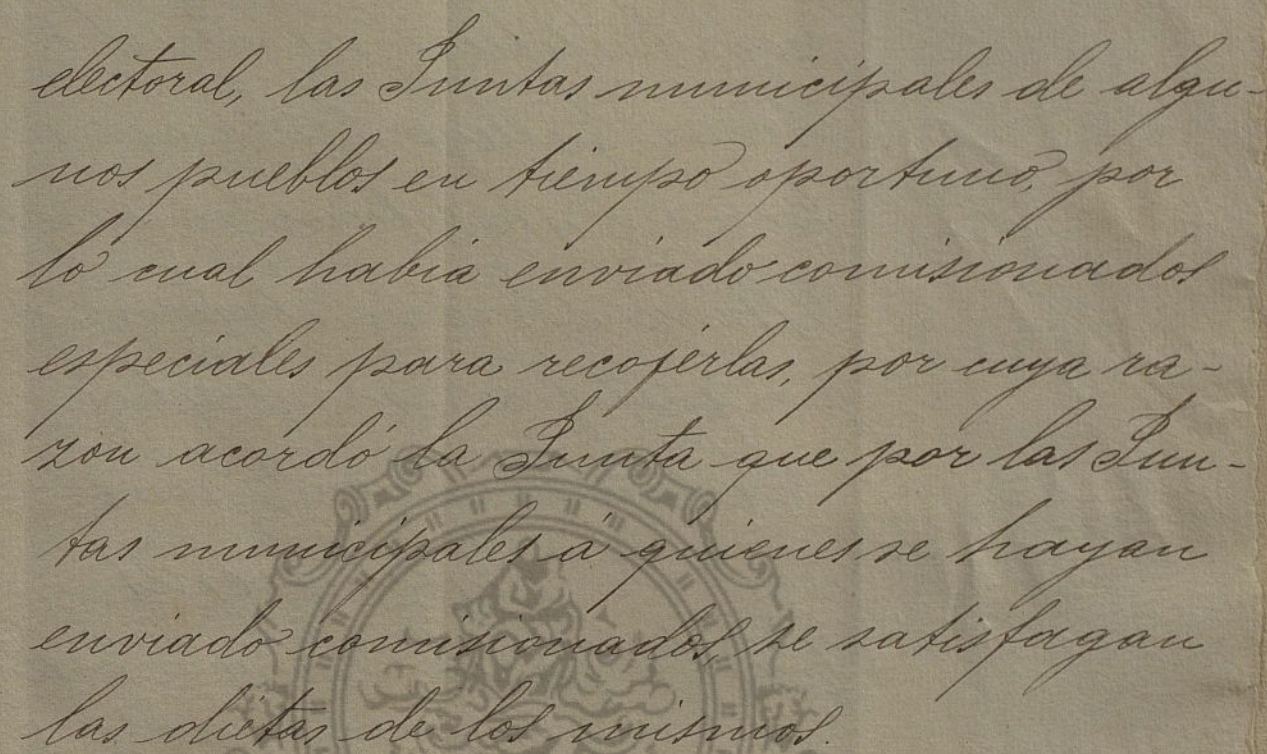 electoral, las Juntas municipales de algu-
nos pueblos en tiempo oportuno, por
lo cual habia enviado comisionados
especiales para recojerlas, por cuya ra-
zon acordó la Junta que por las Jun-
tas municipales á quienes se hayan
enviado comisionados, se satisfagan
las dietas de los mismos.